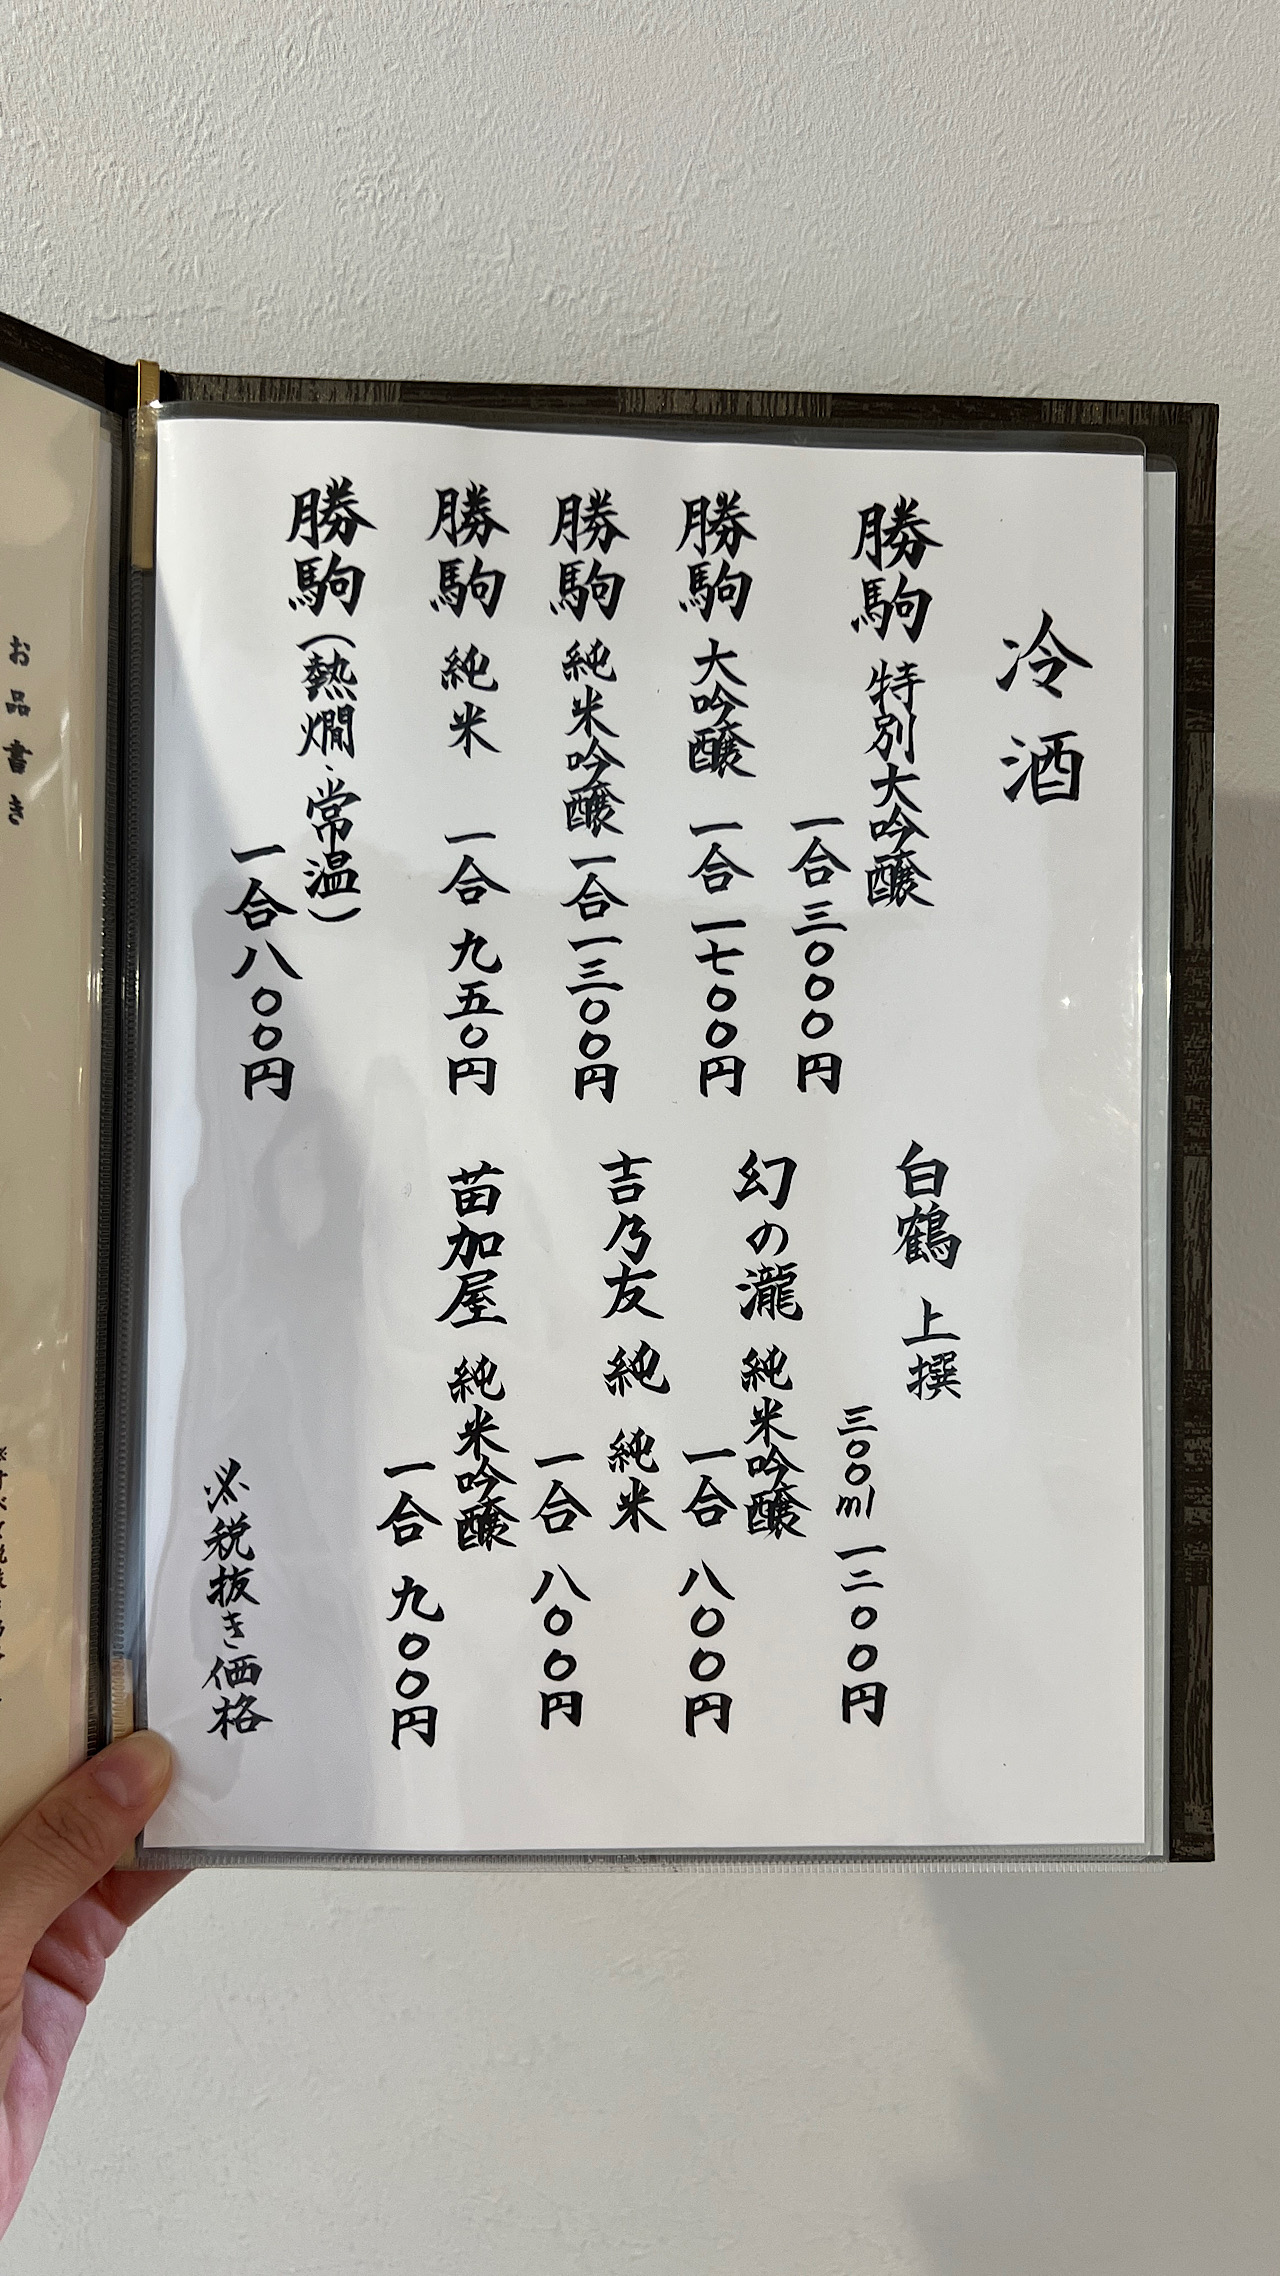 冷酒
勝駒 特別大吟醸
一合 三〇〇〇円
勝駒 大吟醸 一合 一七〇〇円
勝駒 純米吟醸 一合 一三〇〇円
勝駒 純米 一合 九五〇円
勝駒(熱燗・常温)
一合 八〇〇円
白鶴 上撰
三〇〇ml 一二〇〇円
幻の瀧 純米吟醸
一合 八〇〇円
吉乃友 純 純米
一合 八〇〇円
苗加屋 純米吟醸
一合 九〇〇円
※税抜き価格
お品書き